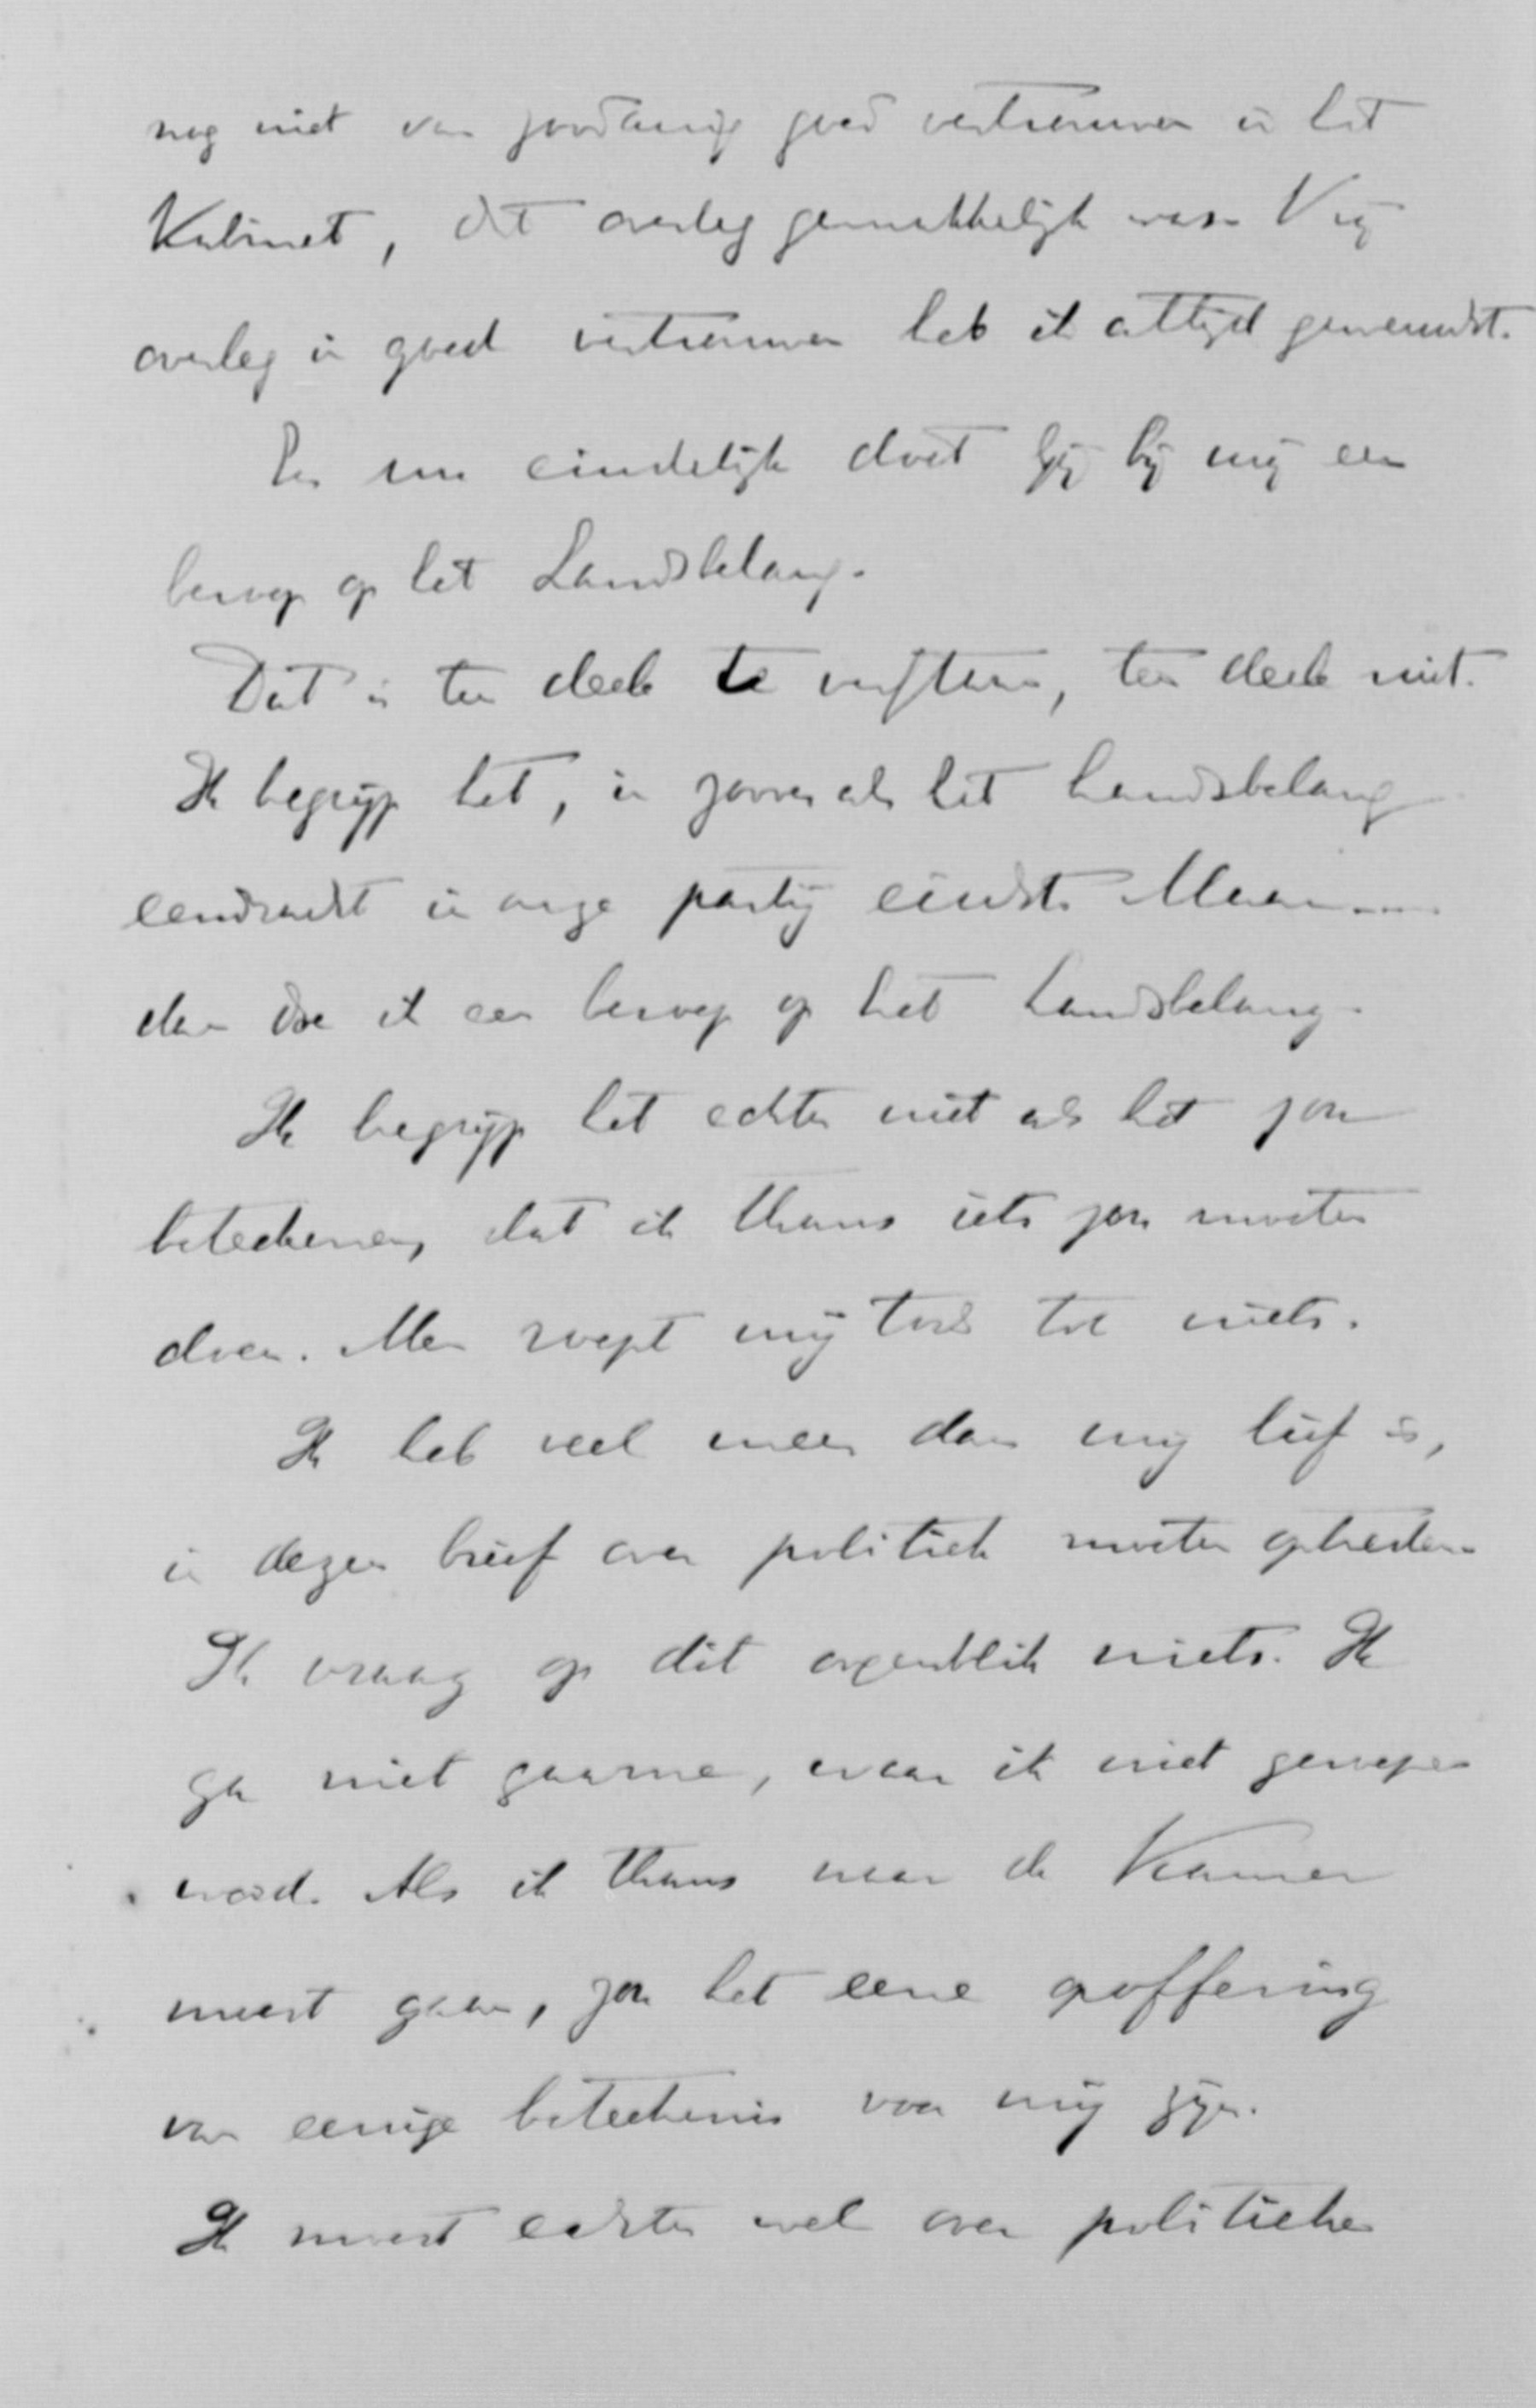 nog niet van zoodanig goed vertrouwen in het
Kabinet, dat overleg gemakkelijk was. Vrij
overleg in goed vertrouwen heb ik altijd gewenscht.
En nu eindelijk doet gij bij mij een
beroep op het Landsbelang.
Dat is ten deele te , ten deele niet.
Ik begrijp het, in zoover als het Landsbelang
eendracht in onze partij eischt. Maar ....
dan doe ik een beroep op het Landsbelang.
Ik begrijp het echter niet als het zou
beteekenen, dat ik thans iets zou moeten
doen. Men roept mij toch tot niets.
Ik heb veel meer dan mij lief is,
in dezen brief over politiek moeten
Ik vraag op dit oogenblik niets. Ik
ga niet gaarne, waar ik niet geroepen
word. Als ik thans naar de Kamer
moest gaan, zou het eene opoffering
van eenige beteekenis voor mij zijn.
Ik moest echter wel over politieke